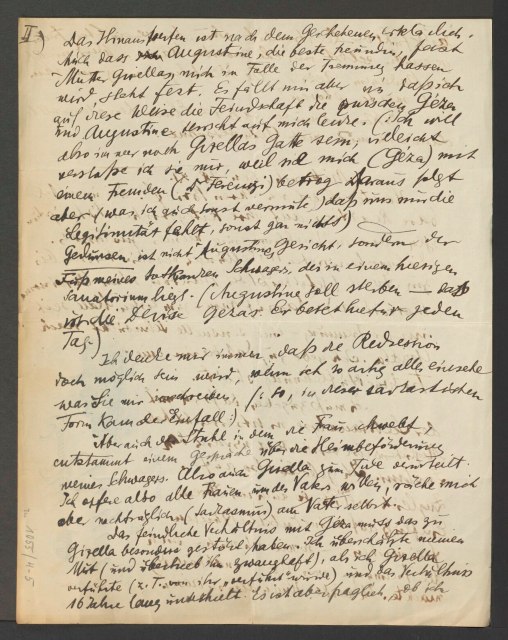 II)
Das Hinauswerfen ist nach dem Geschehenen
dass Augustine, die beste Freundin,
Mutter Gisellas, mich im Falle der Trennung hassen
wird, steht fest. Es fällt mir aber ein, daß ich
auf diese Weise die Feindschaft die zwischen Géza
und Augustine herrscht auf mich lenke. (Ich will
also immer noch Gisellas Gatte sein; vielleicht
verstosse ich sie nur, weil sie mich (Géza) mit
einem Fremden (Dr Ferenczi) betrog. Daraus folgt
aber (was ich auch sonst vermute) daß uns nur die
Legitimität fehlt, sonst gar nichts)
Gedunsen ist nicht Augustines Gesicht, sondern der
Fuß meines Schwagers, der in einem hiesigen
Sanatorium liegt. (Augustine soll sterben —
ist die Devise Gézas. Er betet hiefür jeden
Tag.)
Ich denke mir immer, daß die Redression
doch möglich sein wird, wenn ich so artig alles einsehe
was Sie mir vorschreiben (: so, in dieser sarkastischen
Form kam der Einfall:)
Aber auch der Stuhl in dem die Frau schwebt,
entstammt einem Gespräche über die Heimbeförderung
meines Schwagers. Also auch Gisella zum Tode verurteilt.
Ich opfere also alle Frauen um des Vaters willen, räche mich
aber nachträglich (Sarkasmus) am Vater selbst.
Das feindliche Verhältnis mit Géza muss das zu
Gisella besonders gestört haben. Ich überschätzte meinen
Mut (und übertrieb ihn zwanghaft), als ich Gisella
verführte (z. T. von ihr verführt wurde) und das Verhältniss
16 Jahre lang unterhielt. Es ist aber fraglich, ob ich
1055/4-5